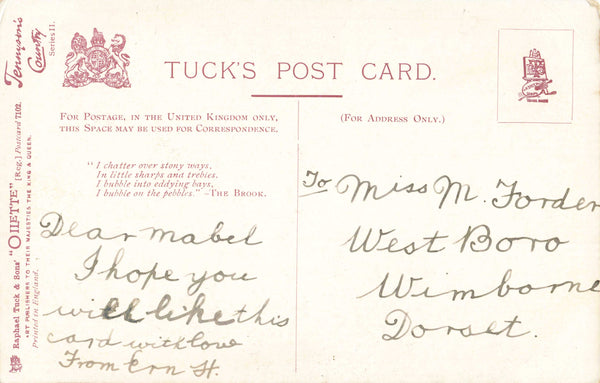 Tennyson's
Country
Series II.
Raphael Tuck & Sons' "OILETTE" [Reg.] Postcard 7102.
ART PUBLISHERS TO THEIR MAJESTIES THE KING & QUEEN.
Printed in England.
TUCK'S POST CARD.
FOR POSTAGE, IN THE UNITED KINGDOM ONLY,
THIS SPACE MAY BE USED FOR CORRESPONDENCE.
(FOR ADDRESS ONLY.)
"I chatter over stony ways,
In little sharps and trebles.
I bubble into eddying bays,
I bubble on the pebbles." —THE BROOK.
Dear Mabel
I hope you
will like this
card with love
From Ern H.
To Miss M. Forder
West Boro
Wimborne
Dorset.